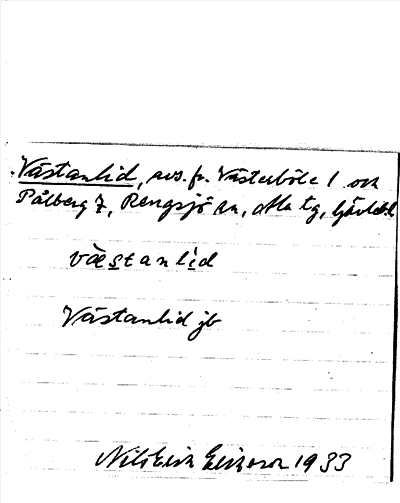 Västanlid, avs. fr. Västerböle 1 och
Pålberg 7, Rengsjö sn, Alfta tg, Gävleb. l.
væstanlid
Västanlid jb
Nils Erik Eriksson 1933